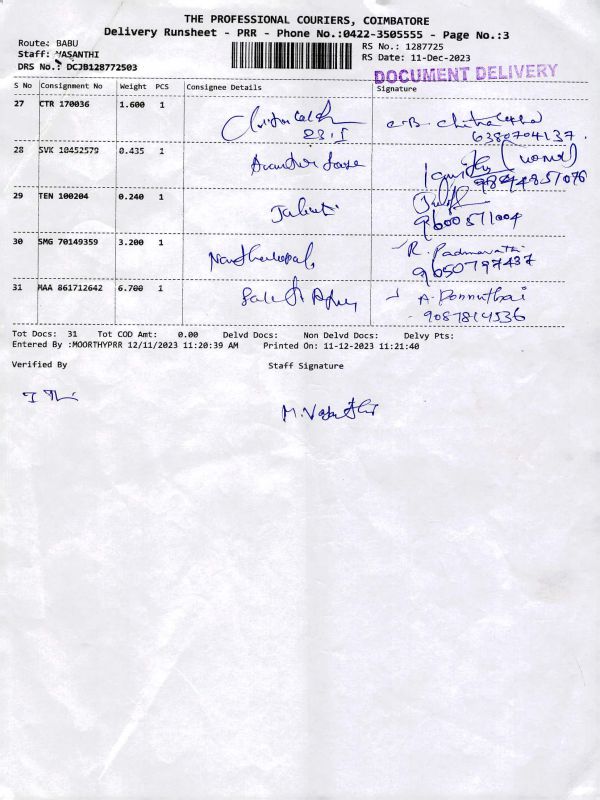 THE PROFESSIONAL COURIERS, COIMBATORE
Delivery Runsheet - PRR - Phone No.:0422-3505555 - Page No.:3
Route: BABU
RS No.: 1287725
Staff: VASANTHI
RS Date: 11-Dec-2023
DRS No.: DCJB128772503
DOCUMENT DELIVERY
S No Consignment No Weight PCS Consignee Details Signature
27 CTR 170036 1.600 1
C.B. Chitralekha
6380704137.
28 SVK 10452579 0.435 1
29 TEN 100204 0.240 1
9600571004
30 SMG 70149359 3.200 1 R. Padmavathi
9650797437
31 MAA 861712642 6.700 1 A. Ponnuthai
9087814536
Tot Docs: 31 Tot COD Amt: 0.00 Delvd Docs: Non Delvd Docs: Delvy Pts:
Entered By :MOORTHYPRR 12/11/2023 11:20:39 AM Printed On: 11-12-2023 11:21:40
Verified By Staff Signature
M. Vasanthi